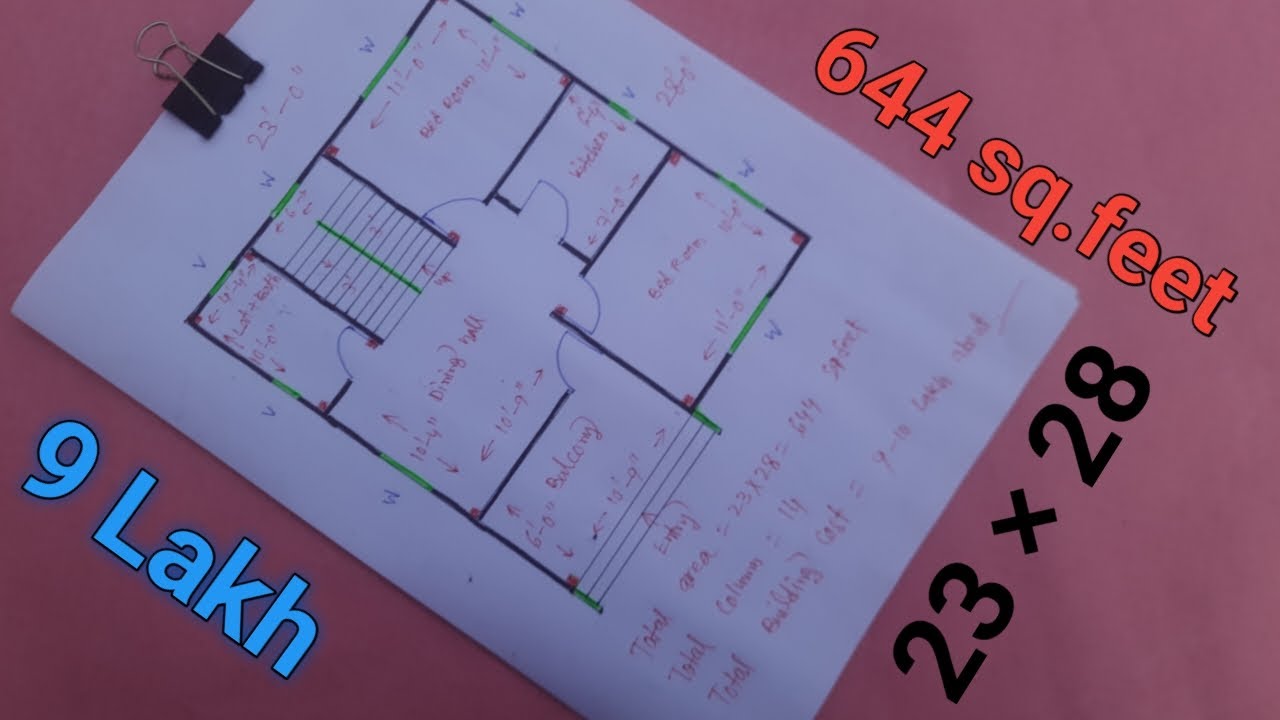 644 sq.feet
23 × 28
9 Lakh
23'-0"
28'-0"
W
W
W
V
V
W
V
W
W
11'-0"
Bed Room
Kitchen
7'-0"
Bed Room
11'-0"
up
4'-4"
Lat+Bath
10'-0"
Dining hall
10'-4"
10'-9"
Balcony
6'-0"
10'-9"
Entry
Total area = 23×28 = 644 sq.feet
Total column = 14
Total Building cost = 9-10 Lakh about